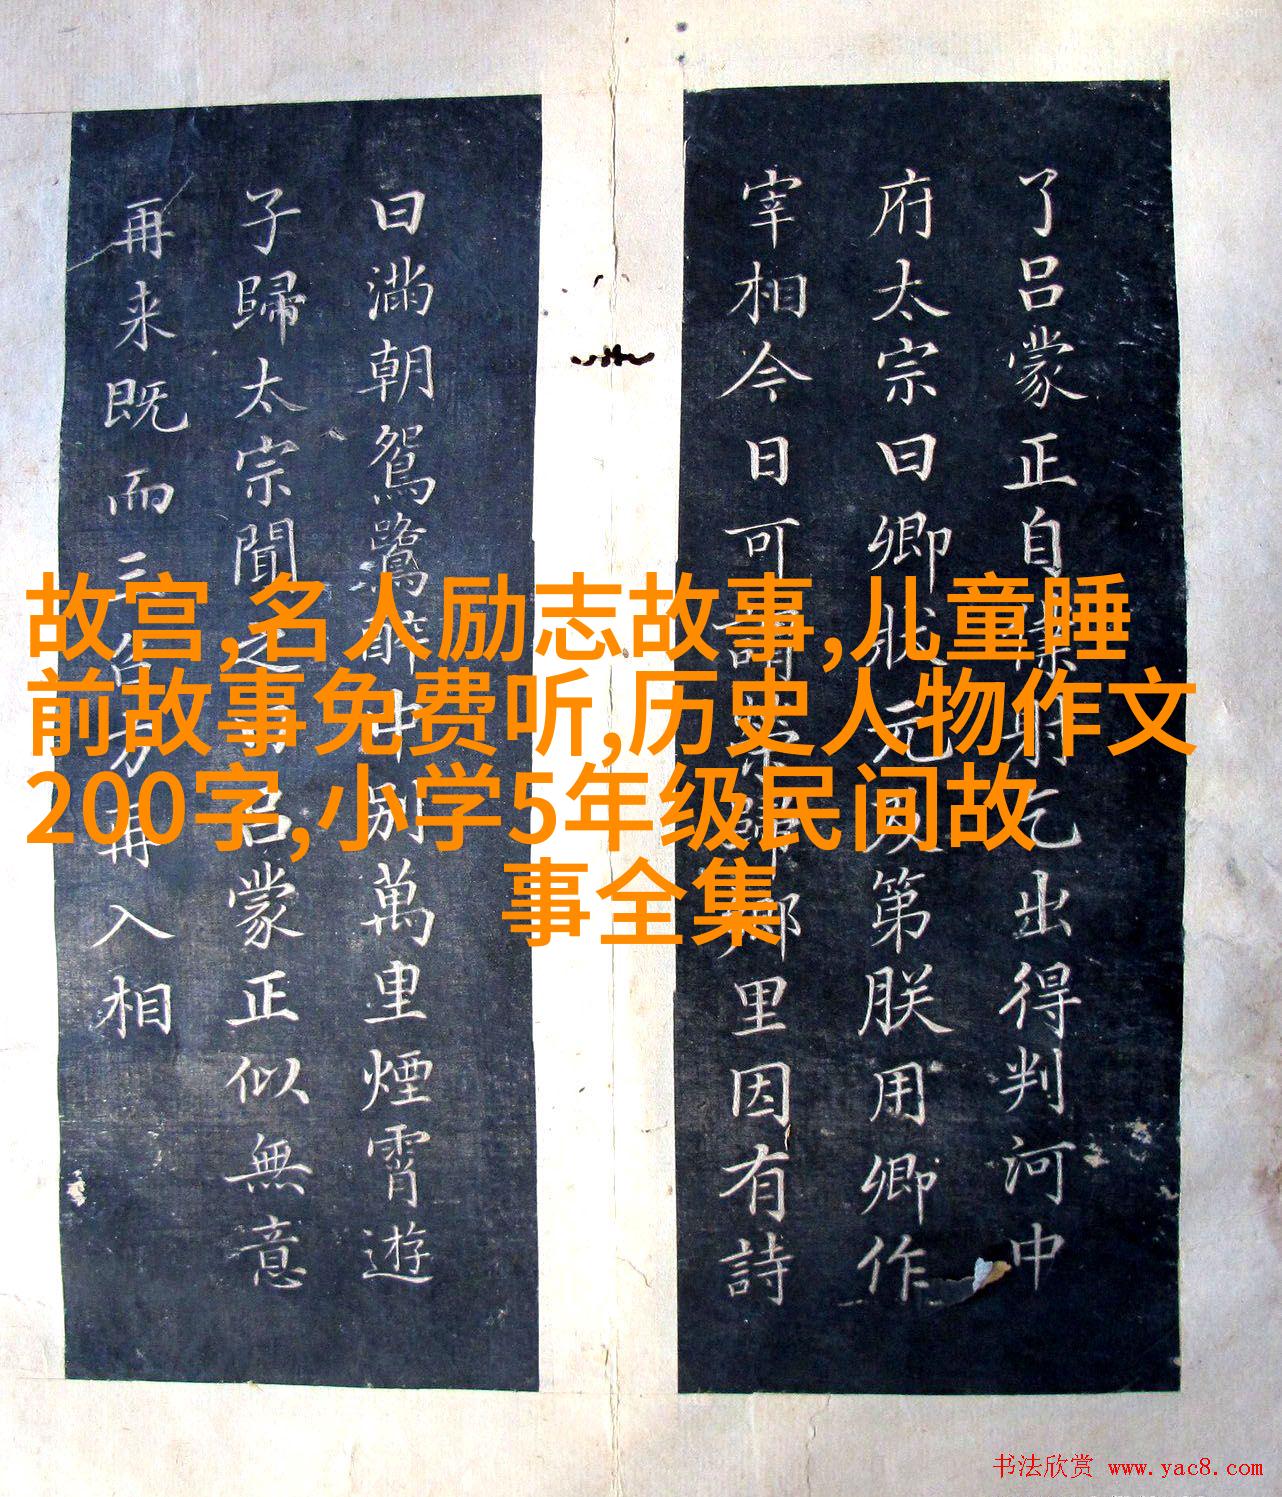 故宫,名人励志故事,儿童睡
前故事免费听,历史人物作文
200字,小学5年级民间故
事全集
了吕蒙正自僕射乞出得判河中
府太宗曰卿狀元及第朕用卿作
宰相今日可謂榮歸鄉里因有詩
曰滿朝鴛鷺醉中别萬里煙霄遊
子歸太宗聞之召蒙正似無意
再来既而三召方再入相
书法欣赏 www.yac8.com